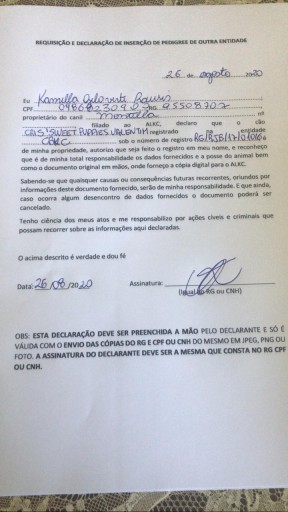 REQUISIÇÃO E DECLARAÇÃO DE INSERÇÃO DE PEDIGREE DE OUTRA ENTIDADE
26 de agosto 2020
Eu Kamilla
CPF RG 95508702
proprietário do canil nº
filiado ao ALKC, declaro que o cão
CRIS' SWEET PUPPIES VALENTIM registrado na entidade
CBKC sob o número de registro
de minha propriedade, autorizo que seja feito o registro em meu nome, e reconheço
que é de minha total responsabilidade os dados fornecidos e a posse do animal bem
como o documento original em mãos, onde forneço a cópia digital para o ALKC.
Sabendo-se que quaisquer causas ou consequências futuras recorrentes, oriundos por
informações deste documento fornecido, serão de minha responsabilidade. E que ainda,
caso ocorra algum desencontro de dados fornecidos o documento poderá ser
cancelado.
Tenho ciência dos meus atos e me responsabilizo por ações cíveis e criminais que
possam recorrer sobre as informações aqui declaradas.
O acima descrito é verdade e dou fé
Data: 26/08/2020 Assinatura:
(Igual do RG ou CNH)
OBS: ESTA DECLARAÇÃO DEVE SER PREENCHIDA A MÃO PELO DECLARANTE E SÓ É
VÁLIDA COM O ENVIO DAS CÓPIAS DO RG E CPF OU CNH DO MESMO EM JPEG, PNG OU
FOTO. A ASSINATURA DO DECLARANTE DEVE SER A MESMA QUE CONSTA NO RG CPF
OU CNH.